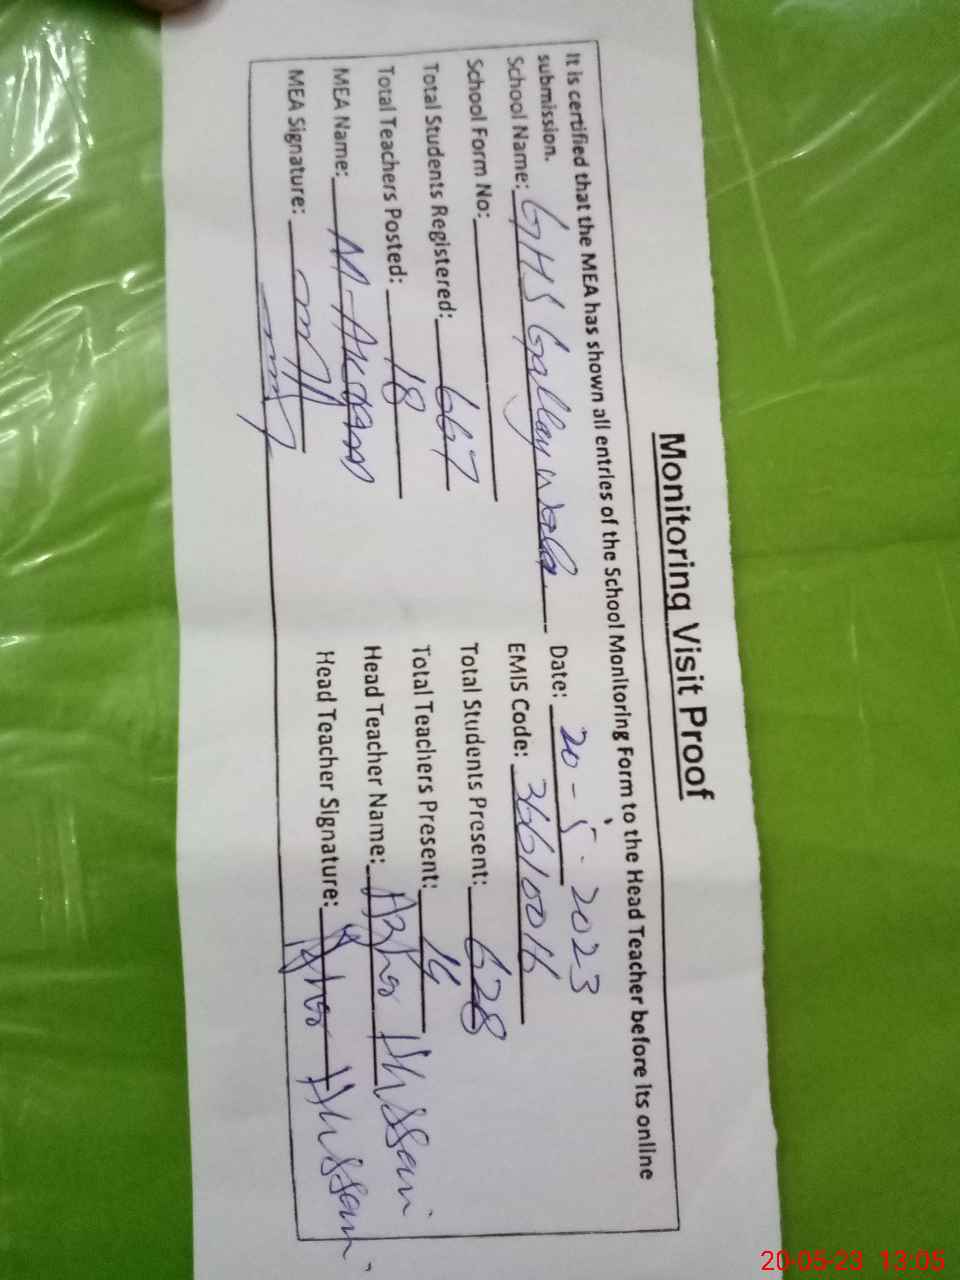 Monitoring Visit Proof
It is certified that the MEA has shown all entries of the School Monitoring Form to the Head Teacher before its online
submission.
School Name: GHS Gallaywala Date: 20-5-2023
School Form No: EMIS Code:
Total Students Registered: 667 Total Students Present: 628
Total Teachers Posted: 18 Total Teachers Present: 14
MEA Name: M-Akram Head Teacher Name: Azhar Hussain
MEA Signature: Head Teacher Signature: Azhar Hussain
20-05-23 13:05